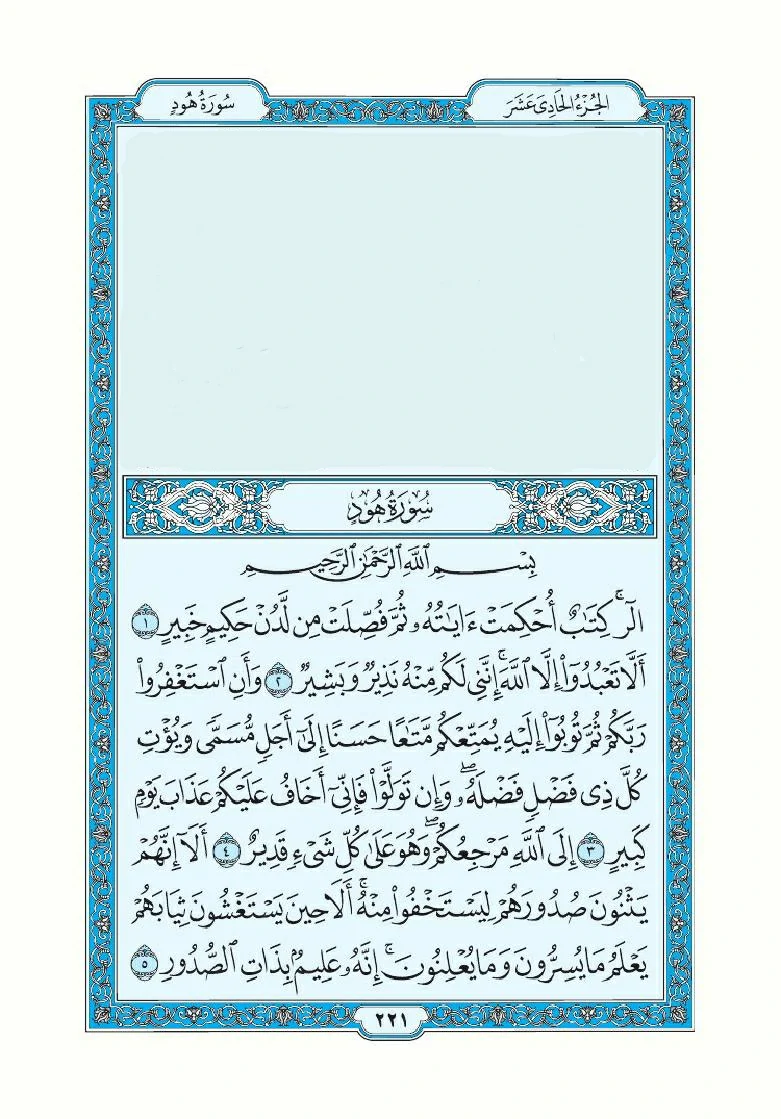 الجُزْءُ الحَادِى عَشَرَ
سُورَةُ هُودٍ
سُورَةُ هُودٍ
بِسْمِ ٱللَّهِ ٱلرَّحْمَٰنِ ٱلرَّحِيمِ
الٓرۚ كِتَٰبٌ أُحْكِمَتْ ءَايَٰتُهُۥ ثُمَّ فُصِّلَتْ مِن لَّدُنْ حَكِيمٍ خَبِيرٍ ١
أَلَّا تَعْبُدُوٓا۟ إِلَّا ٱللَّهَۚ إِنَّنِى لَكُم مِّنْهُ نَذِيرٌ وَبَشِيرٌ ٢ وَأَنِ ٱسْتَغْفِرُوا۟
رَبَّكُمْ ثُمَّ تُوبُوٓا۟ إِلَيْهِ يُمَتِّعْكُم مَّتَٰعًا حَسَنًا إِلَىٰٓ أَجَلٍ مُّسَمًّى وَيُؤْتِ
كُلَّ ذِى فَضْلٍ فَضْلَهُۥۖ وَإِن تَوَلَّوْا۟ فَإِنِّىٓ أَخَافُ عَلَيْكُمْ عَذَابَ يَوْمٍ
كَبِيرٍ ٣ إِلَى ٱللَّهِ مَرْجِعُكُمْۖ وَهُوَ عَلَىٰ كُلِّ شَىْءٍ قَدِيرٌ ٤ أَلَآ إِنَّهُمْ
يَثْنُونَ صُدُورَهُمْ لِيَسْتَخْفُوا۟ مِنْهُۚ أَلَا حِينَ يَسْتَغْشُونَ ثِيَابَهُمْ
يَعْلَمُ مَا يُسِرُّونَ وَمَا يُعْلِنُونَۚ إِنَّهُۥ عَلِيمٌۢ بِذَاتِ ٱلصُّدُورِ ٥
٢٢١